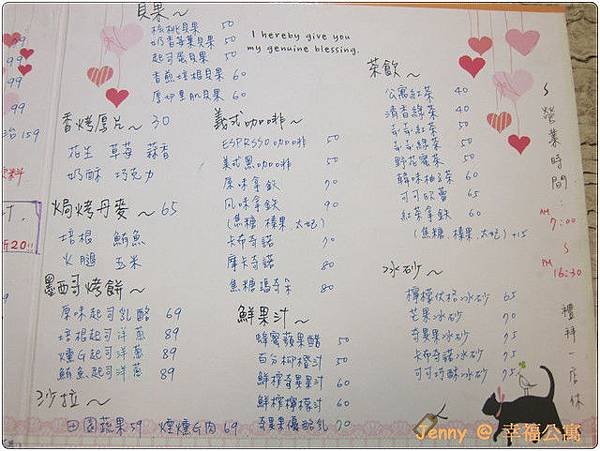 貝果～
核桃貝果 50
奶香莓果貝果 50
起司蛋貝果 50
香煎培根貝果 60
厚切里肌貝果 60
I hereby give you
my genuine blessing.
香烤厚片～ 30
花生 草莓 蒜香
奶酥 巧克力
焗烤丹麥～65
培根 鮪魚
火腿 玉米
墨西哥烤餅～
原味起司乳酪 69
培根起司洋蔥 89
燻G起司洋蔥 89
鮪魚起司洋蔥 89
沙拉～
田園蔬果59 煙燻G肉69
義式咖啡～
ESPRSSO咖啡 50
美式黑咖啡 50
原味拿鉄 70
風味拿鉄 90
(焦糖 榛果 太妃)
卡布奇諾 70
摩卡奇諾 80
焦糖瑪奇朵 80
鮮果汁～
蜂蜜蘋果醋 50
百分柳橙汁 50
鮮榨奇異果汁 60
鮮榨檸檬汁 60
奇異果優酪乳 70
茶飲～
公寓紅茶 40
清香綠茶 40
紅茶 50
綠茶 50
野花蜜茶 50
韓味柚子茶 60
可可歐蕾 65
紅茶拿鉄 60
(焦糖 榛果 太妃) +15
冰砂～
檸檬冰砂 65
芒果冰砂 75
奇異果冰砂 75
卡布奇諾冰砂 75
可可巧酥冰砂 75
營業時間:
AM 7:00
～
PM 16:30
禮拜一店休
159
折20!!
Jenny @ 幸福公寓